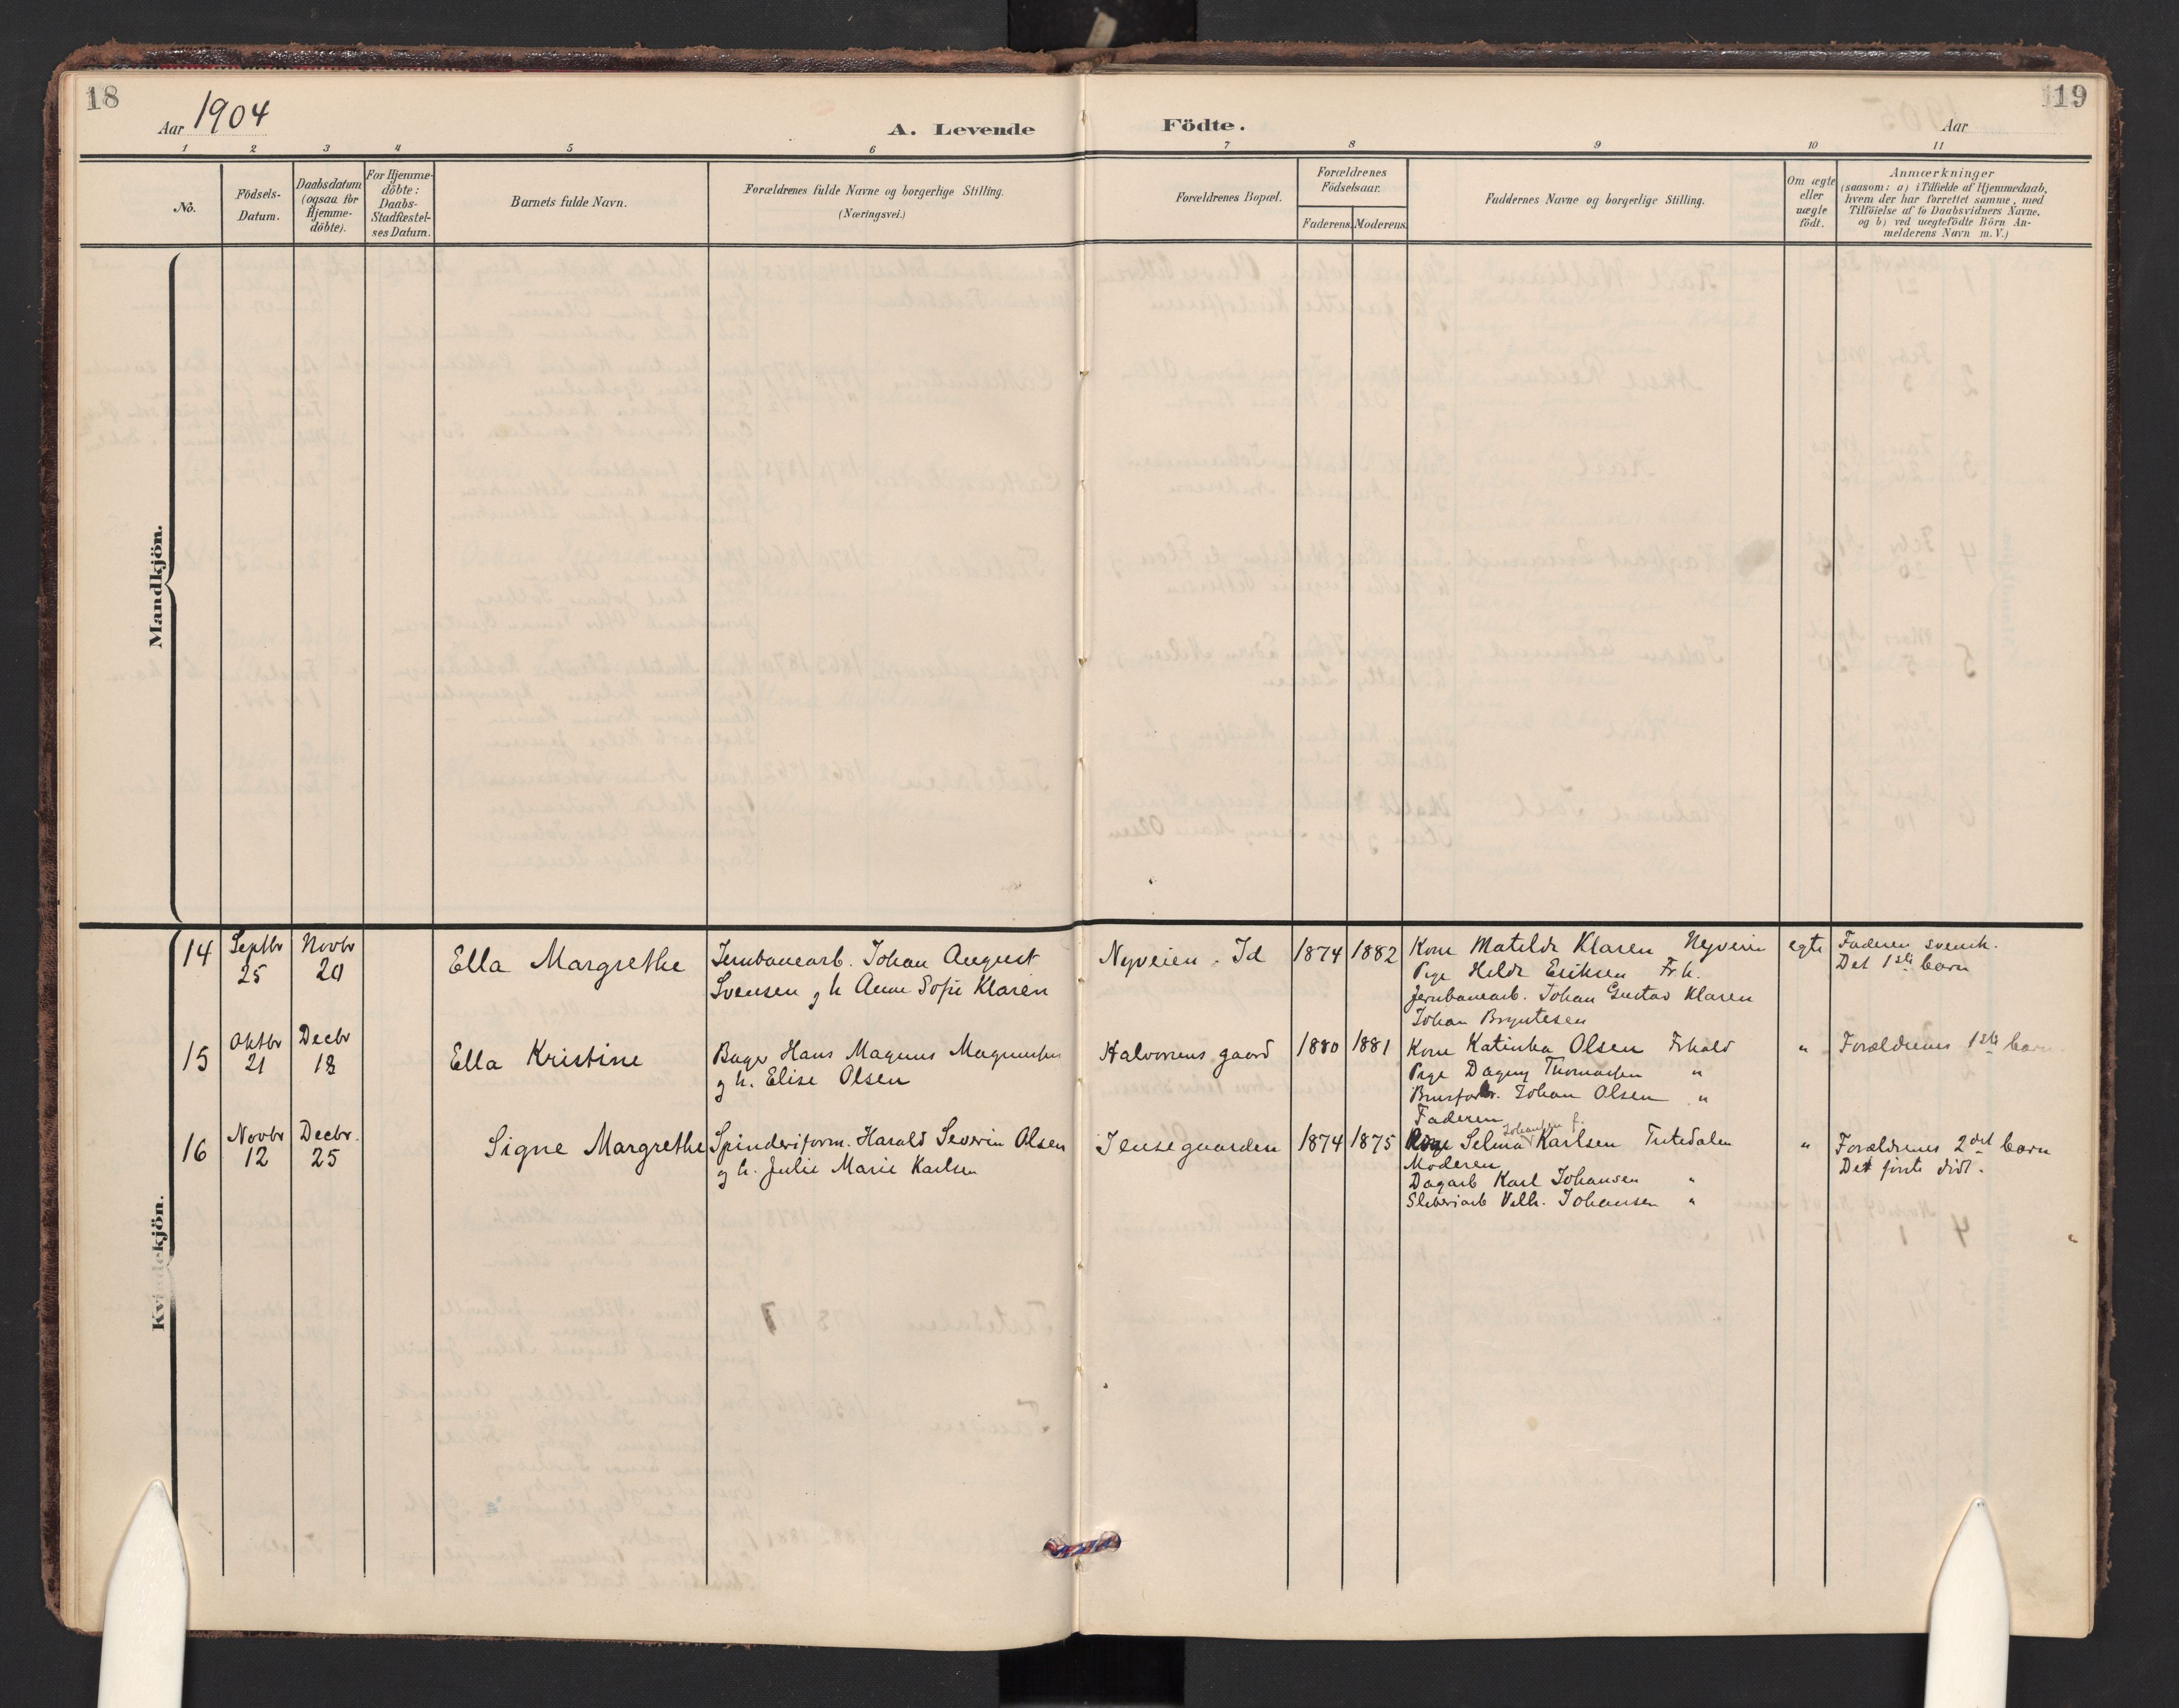 18
Aar 1904
A. Levende
Födte.
Aar
119
1 2 3 4 5 6 7 8 9 10 11
No.
Födsels-
Datum.
Daabsdatum
(ogsaa for
Hjemme-
döbte).
For Hjemme-
döbte:
Daabs-
Stadfæstel-
ses Datum.
Barnets fulde Navn.
Forældrenes fulde Navne og borgerlige Stilling.
(Næringsvei.)
Forældrenes Bopæl.
Forældrenes
Födselsaar.
Faderens.
Moderens.
Faddernes Navne og borgerlige Stilling.
Om ægte
eller
uægte
födt.
Anmærkninger
(saasom: a) i Tilfælde af Hjemmedaab,
hvem der har forrettet samme, med
Tilföielse af to Daabsvidners Navne,
og b) ved uægtefödte Börn An-
melderens Navn m. V.)
Mandkjön.
Kvindekjön.
14
Septbr
25
Novbr
20
Ella Margrethe
Jernbanearb. Johan August
Svensen g h Anne Sofie Klaren
Nyveien. Id
1874
1882
Kone Matilde Klaren Nyveien
Pige Hilda Eriksen Fr.h.
Jernbanearb. Johan Gustav Klaren
Johan Bryntesen
egte
Faderen svensk.
Det 1ste barn
15
Oktbr
21
Decbr
18
Ella Kristine
Bager Hans Magnus Magnussen
g h. Elise Olsen
Halvorsens gaard
1880
1881
Kone Katinka Olsen Frhald
Pige Dagny Thomassen "
Johan Olsen "
Faderen
"
Forældrenes 1ste barn
16
Novbr
12
Decbr.
25
Signe Margrethe
Spinderiform. Harald Severin Olsen
g h. Julie Marie Karlsen
Jensegaarden
1874
1875
Johansen f.
Selma Karlsen Tistedalen
Moderen
Dagarb Karl Johansen "
Sliberiarb Vilh. Johansen "
"
Forældrenes 2det barn
Det første död.